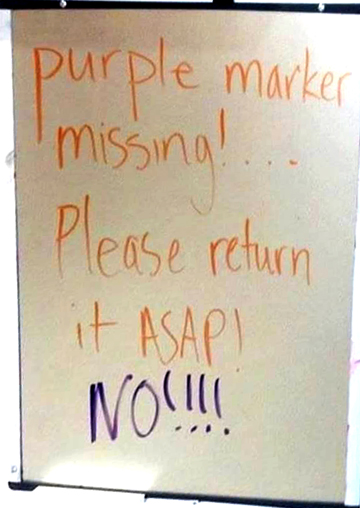 purple marker
missing!...
Please return
it ASAP!
NO!!!!